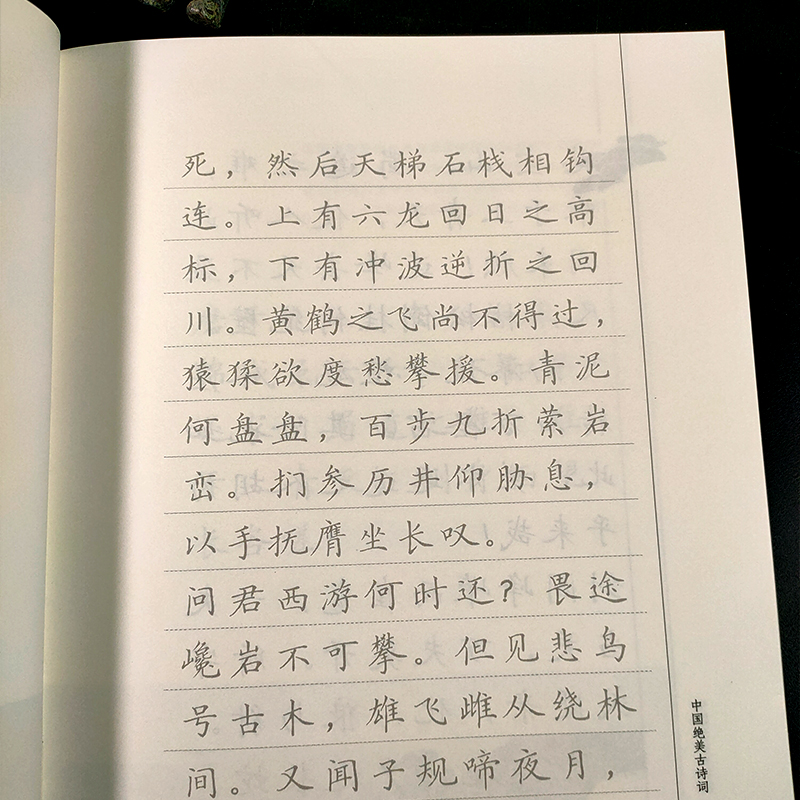 死，然后天梯石栈相钩
连。上有六龙回日之高
标，下有冲波逆折之回
川。黄鹤之飞尚不得过，
猿猱欲度愁攀援。青泥
何盘盘，百步九折萦岩
峦。扪参历井仰胁息，
以手抚膺坐长叹。
问君西游何时还？畏途
巉岩不可攀。但见悲鸟
号古木，雄飞雌从绕林
间。又闻子规啼夜月，
中国绝美古诗词